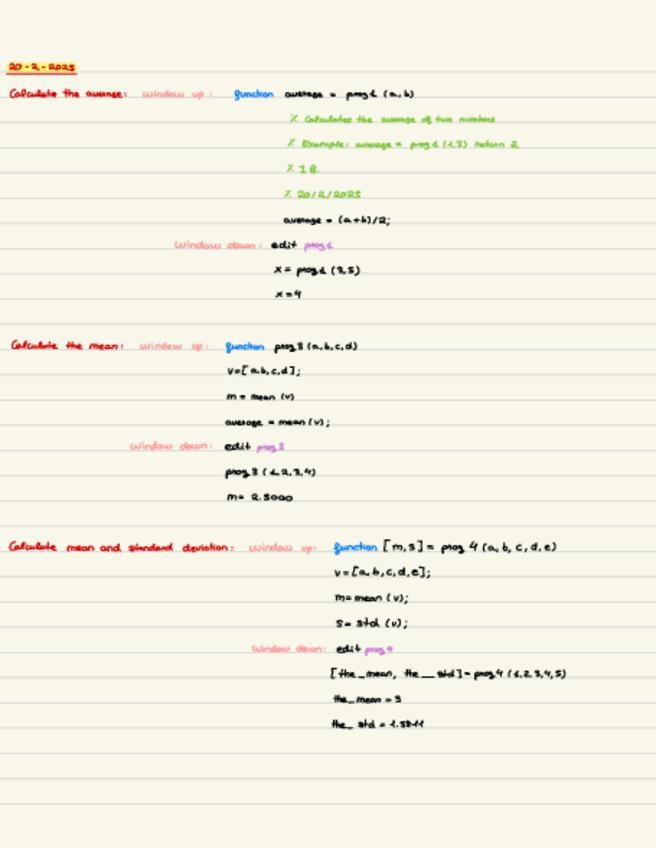 20-2-2025
Calculate the average: window up: function average = prog1 (a,b)
% Calculates the average of two numbers
% Example: average = prog1 (1,3) return 2
% I B.
% 20/2/2025
average = (a+b)/2;
window down: edit prog1
x = prog1 (3,5)
x = 4
Calculate the mean: window up: function prog3 (a,b,c,d)
v=[a,b,c,d];
m = mean (v)
average = mean (v);
window down: edit prog3
prog3 (1,2,3,4)
m= 2.5000
Calculate mean and standard deviation: window up: function [m,s] = prog4 (a,b,c,d,e)
v=[a,b,c,d,e];
m=mean (v);
s= std (v);
window down: edit prog4
[the_mean, the_std]=prog4 (1,2,3,4,5)
the_mean = 3
the_std = 1.5811